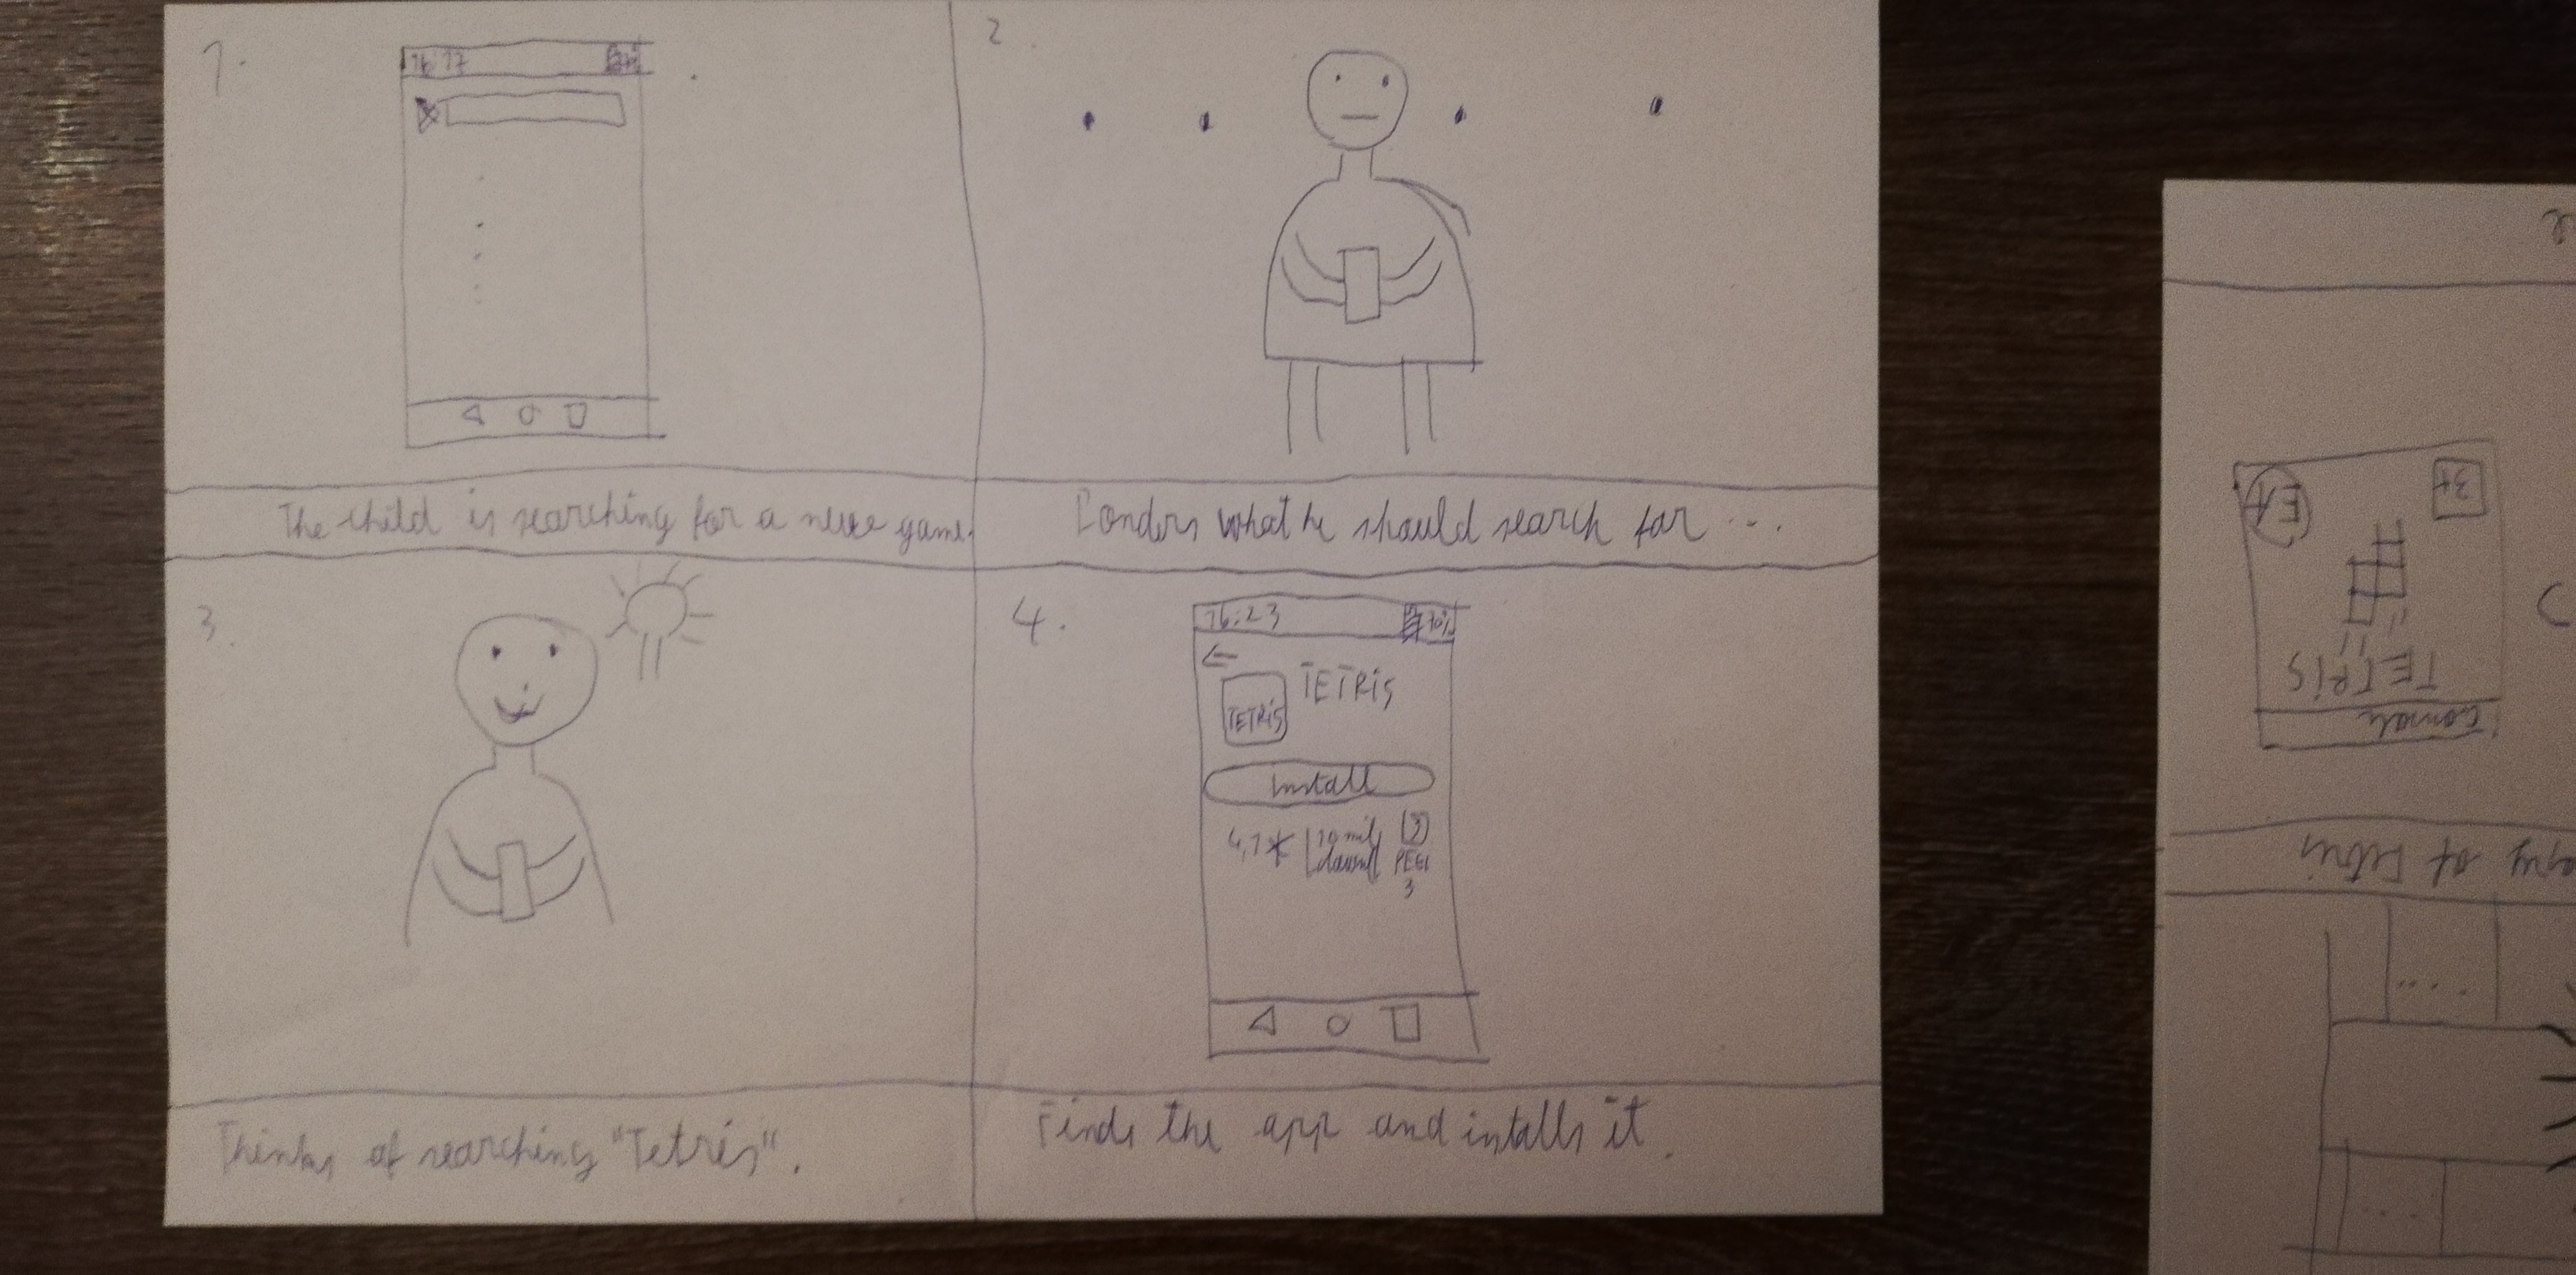 1.
16:17
The child is searching for a new game.
2.
Ponders what he should search for ...
3.
Thinks of searching "Tetris".
4.
16:23
70%
TETRIS
TETRIS
Install
4,7
10 mil
downl
3
PEGI
3
Finds the app and intalls it.
EA
3+
TETRIS
Console
of Tetris